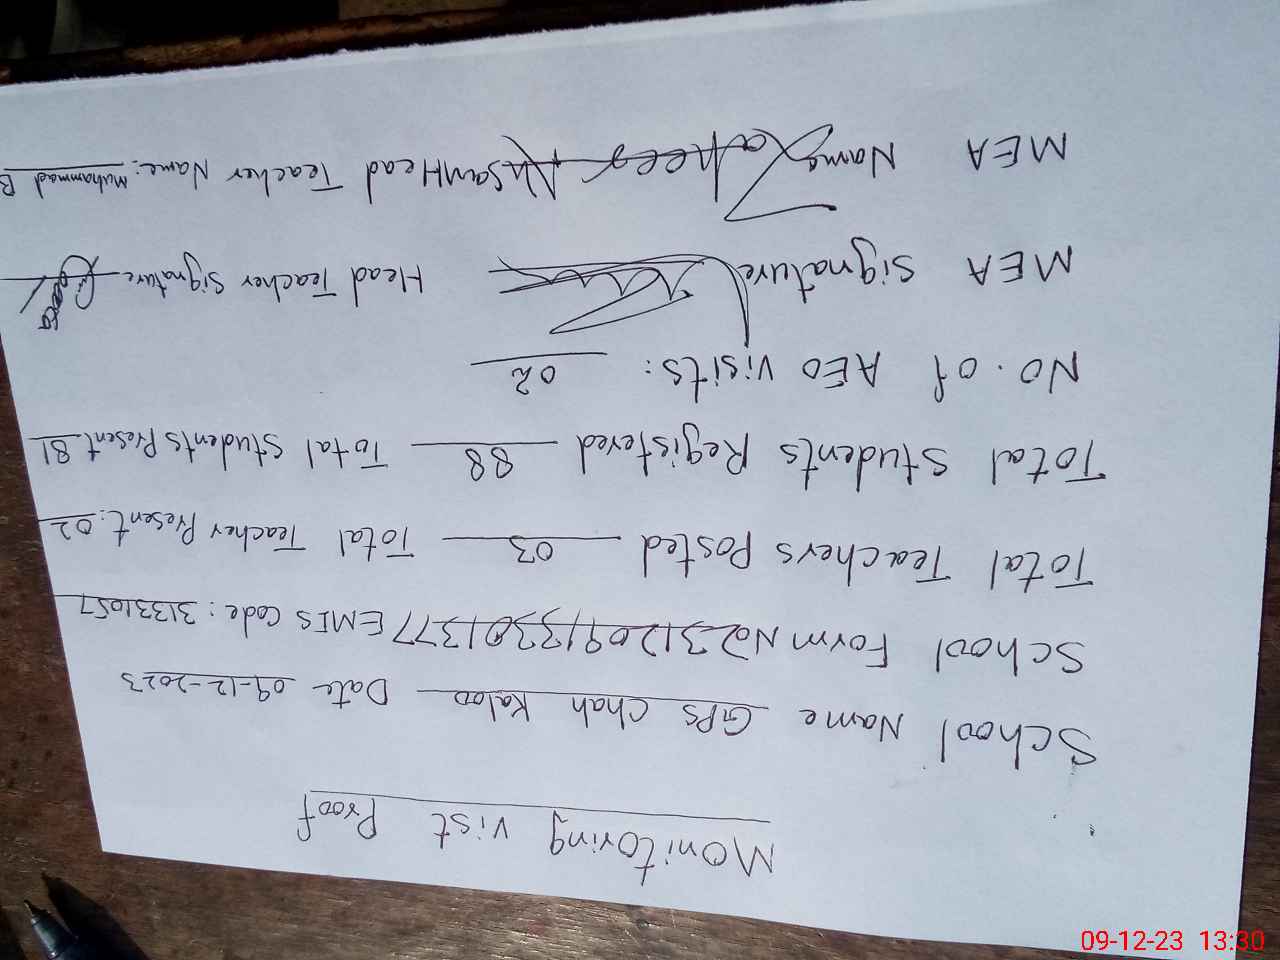 Monitoring vist Proof
School Name GPS Chah Kaloo Date 09-12-2023
School Form No 23120913301377 EMIS Code: 31331057
Total Teachers Posted 03 Total Teacher Present: 02
Total Students Registered 88 Total Students Present 81
No. of AEO visits: 02
MEA Signature Head Teacher Signature
MEA Name Zaheer Ahsan Head Teacher Name: Muhammad B
09-12-23 13:30